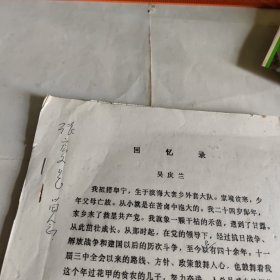 回忆录
吴庆兰
我祖籍阜宁，生于滨海大套乡外套大队。家境贫寒，少
年父母亡故。从小就是在苦卤中泡大的。我二十四岁那年，
家乡来了救星共产党。我就象一颗干枯的禾苗，遇到了甘露，
从此茁壮成长。从那时起，在党的领导下，经过抗日战争、
解放战争和建国以后的历次斗争，至今已有四十余年。十一
届三中全会以来的路线、方针、政策鼓舞人心，也鼓舞着我
这个年过花甲的贫农的儿子，努力奋进。